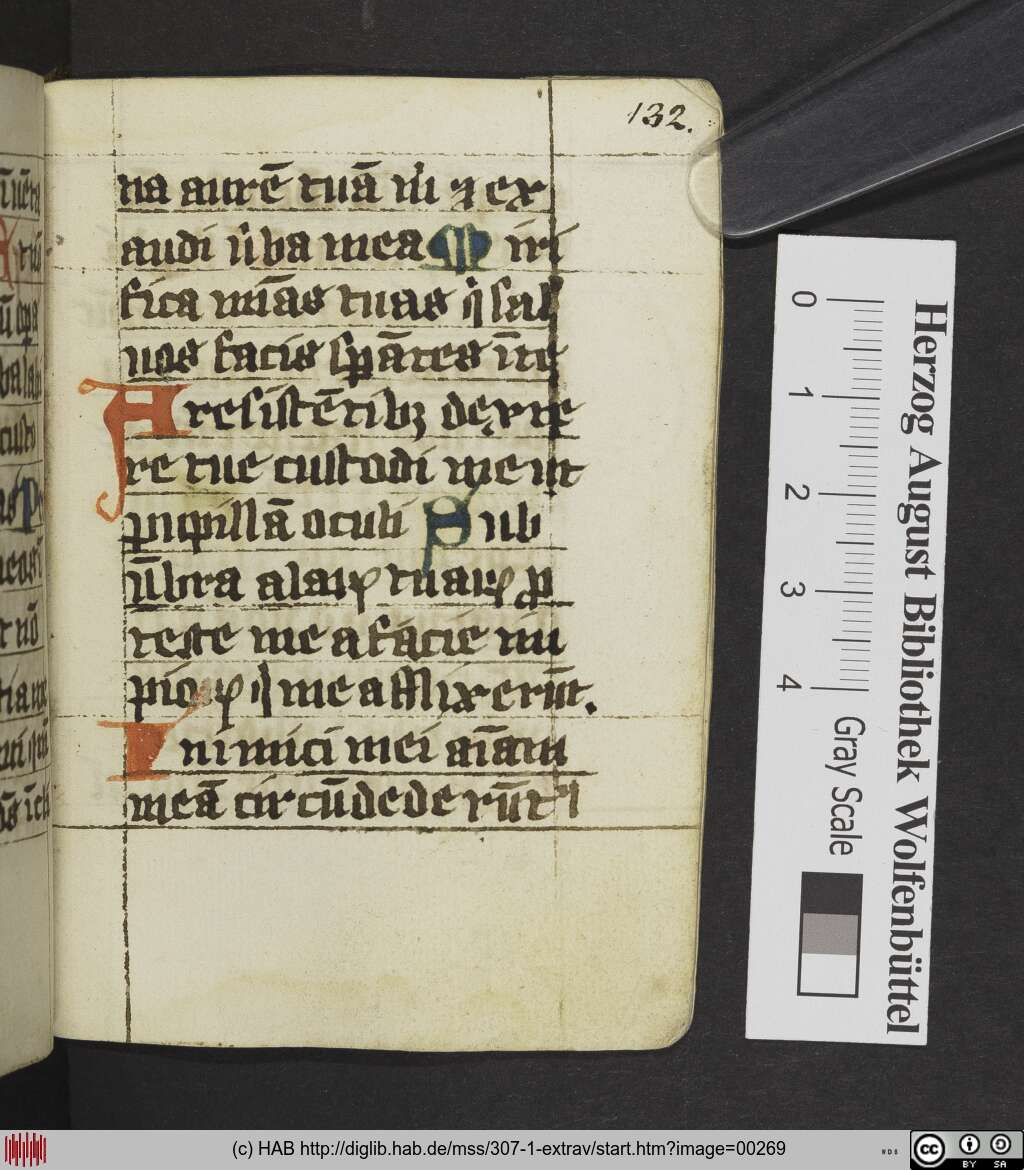 132.
na aurē tuā m̄ ⁊ ex
audi v̄ba mea Miri
fica mīas tuas q̄ sal
uos facis sꝑātes ī te
A resistētibꝫ dextre
re tue custodi me ut
pupillā oculi Sub
ūbra alaꝝ tuaꝝ ꝓ
tege me a facie im
pioꝝ q̄ me afflixerūt.
Inimici mei aīam
meā circūdederūt
0
1
2
3
4
Gray Scale
Herzog August Bibliothek Wolfenbüttel
(c) HAB http://diglib.hab.de/mss/307-1-extrav/start.htm?image=00269
cc
BY SA